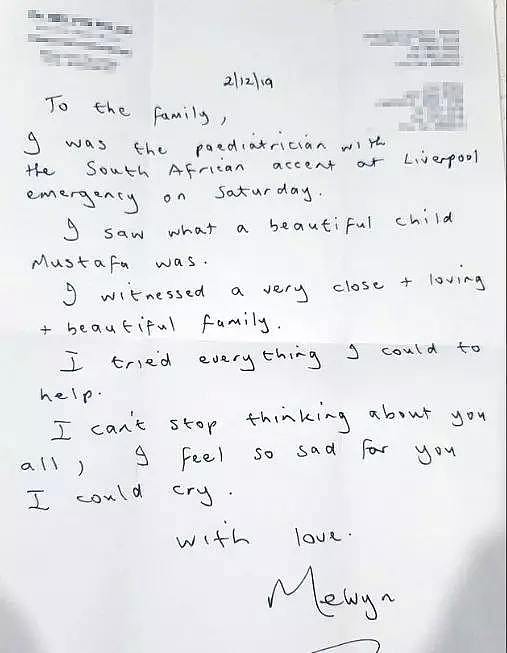 2/12/19
To the family,
I was the paediatrician with
the South African accent at Liverpool
emergency on Saturday.
I saw what a beautiful child
Mustafa was.
I witnessed a very close + loving
+ beautiful family.
I tried everything I could to
help.
I can't stop thinking about you
all, I feel so sad for you
I could cry.
with love.